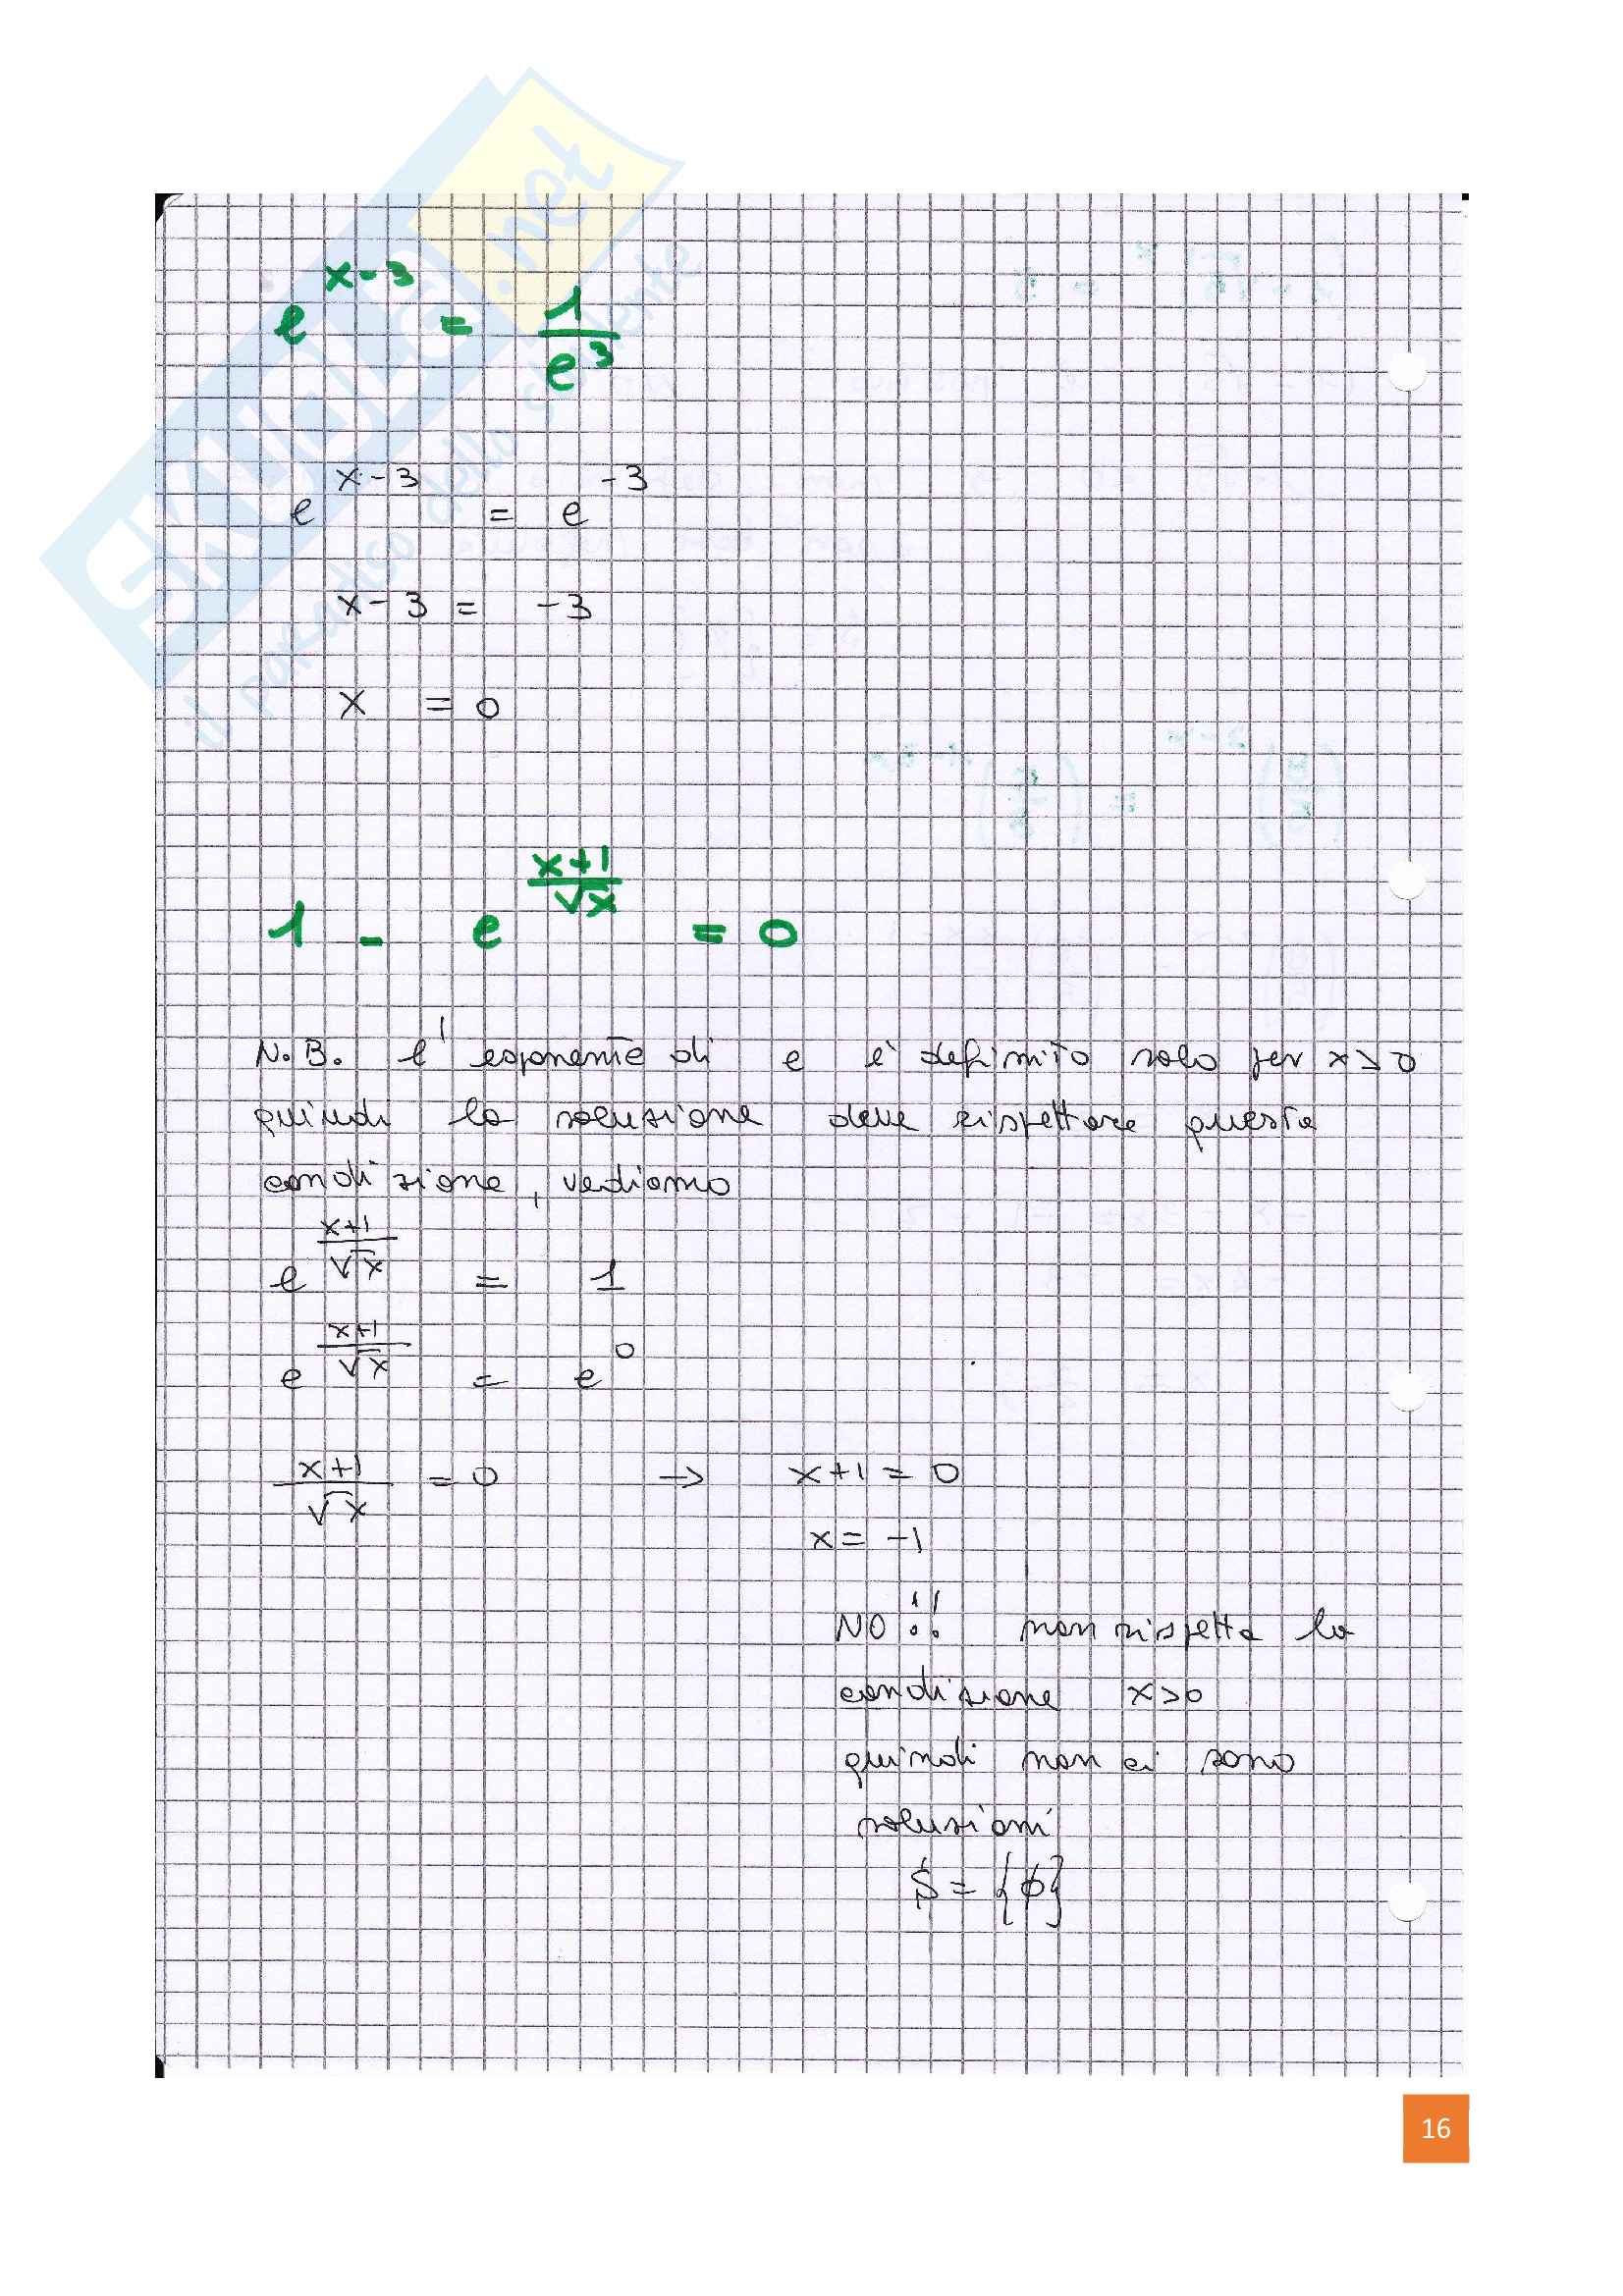 SKUOLA.net
il paradiso dello studente
e^{x-3} = \frac{1}{e^3}
e^{x-3} = e^{-3}
x-3 = -3
x = 0
1 - e^{\frac{x+1}{\sqrt{x}}} = 0
N.B. l'esponente di e è definito solo per x>0
quindi la soluzione deve rispettare questa
condizione, vediamo
e^{\frac{x+1}{\sqrt{x}}} = 1
e^{\frac{x+1}{\sqrt{x}}} = e^0
\frac{x+1}{\sqrt{x}} = 0 → x+1 = 0
x = -1
NO!! non rispetta la
condizione x>0
quindi non ci sono
soluzioni
S = {∅}
16